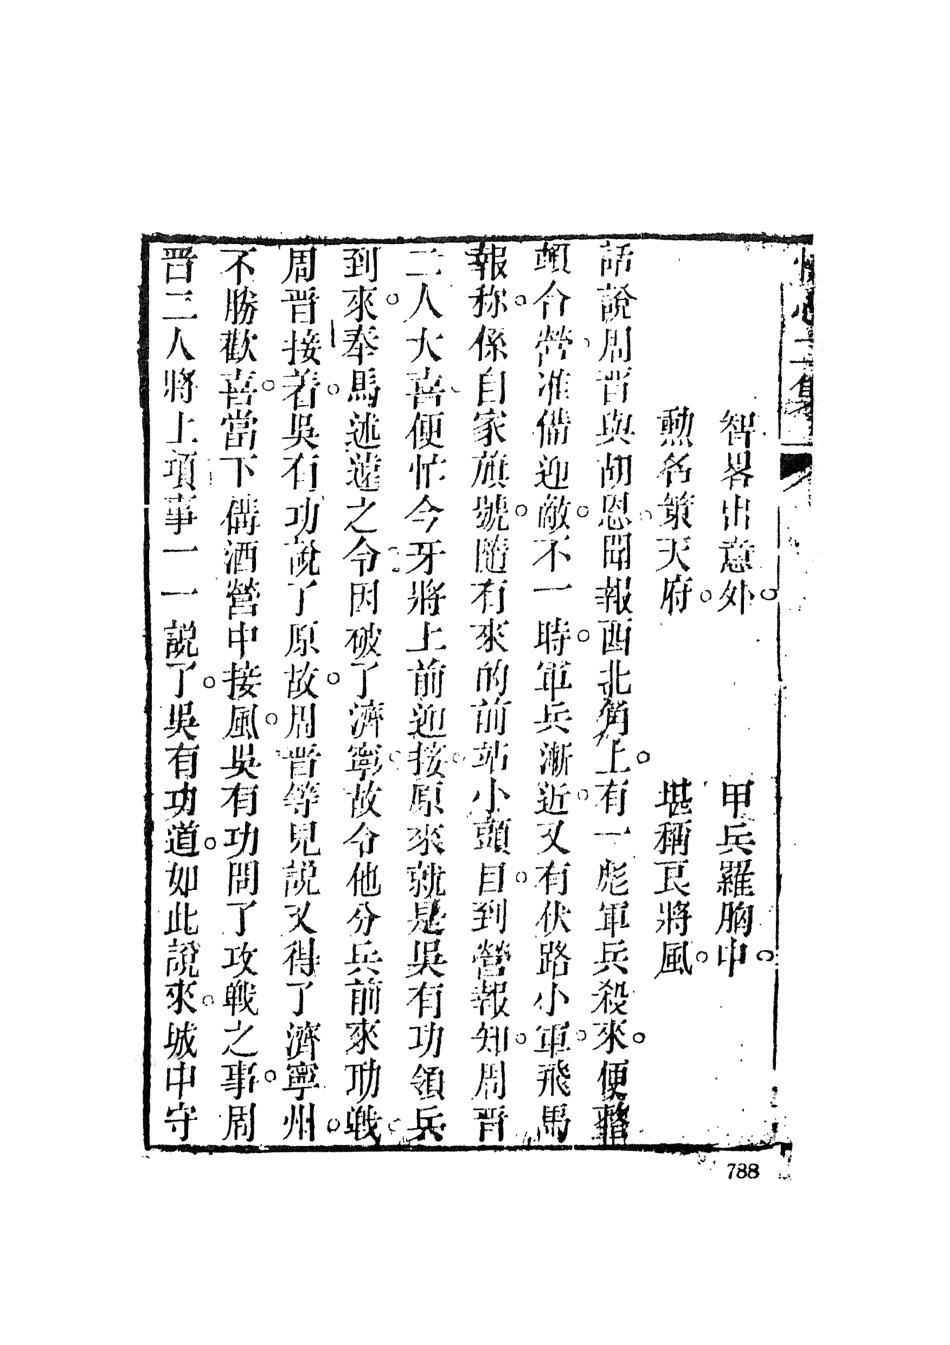 智畧出意外。甲兵羅胸中。
勲名策天府。堪稱良將風。
話說周晋與胡恩聞報西北角上。有一彪軍兵殺來。便整
頓合營准備迎敵。不一時。軍兵漸近。又有伏路小軍。飛馬
報称。係自家旗號。隨有來的前站小頭目。到營報知。周晋
二人大喜、便忙令牙將上前迎接。原來就是吳有功領兵
到來。奉馬述遠之令。因破了濟寧。故令他分兵前來功戦。
周晋接着。吳有功說了原故。周晋等見說又得了濟寧州。
不勝歡喜。當下備酒營中接風。吳有功問了攻戦之事。周
晋二人將上項事一一說了。吳有功道。如此說來。城中守
788